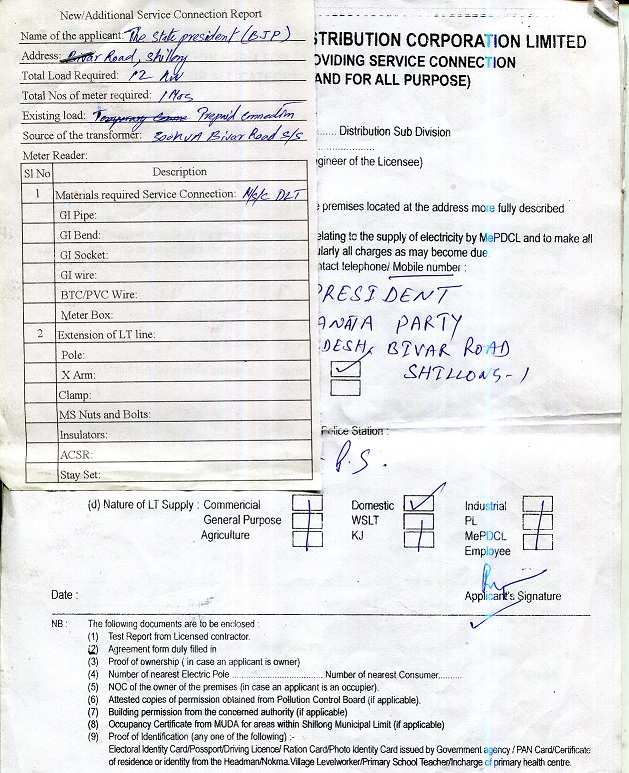 New/Additional Service Connection Report
Name of the applicant: The State president (BJP)
Address: Bivar Road, Shillong
Total Load Required: 12 KW
Total Nos of meter required: 1 Nos
Existing load: Prepaid Connection
Source of the transformer: 300KVA Bivar Road S/S
Meter Reader:
Sl No Description
1 Materials required Service Connection: M/s/c DLT
GI Pipe:
GI Bend:
GI Socket:
GI wire:
BTC/PVC Wire:
Meter Box:
2 Extension of LT line:
Pole:
X Arm:
Clamp:
MS Nuts and Bolts:
Insulators:
ACSR:
Stay Set:
STRIBUTION CORPORATION LIMITED
OVIDING SERVICE CONNECTION
AND FOR ALL PURPOSE)
........ Distribution Sub Division
ngineer of the Licensee)
premises located at the address more fully described
elating to the supply of electricity by MePDCL and to make all
ularly all charges as may become due
ntact telephone/ Mobile number :
PRESIDENT
ANATA PARTY
DESH, BIVAR ROAD
SHILLONG-1
Police Station :
P.S.
(d) Nature of LT Supply : Commericial Domestic Industrial
General Purpose WSLT PL
Agriculture KJ MePDCL
Employee
Date :
Applicant's Signature
NB : The following documents are to be enclosed :
(1) Test Report from Licensed contractor.
(2) Agreement form duly filled in
(3) Proof of ownership ( in case an applicant is owner)
(4) Number of nearest Electric Pole .............................. Number of nearest Consumer.........
(5) NOC of the owner of the premises (in case an applicant is an occupier).
(6) Attested copies of permission obtained from Pollution Control Board (if applicable).
(7) Building permission from the concerned authority (if applicable)
(8) Occupancy Certificate from MUDA for areas within Shillong Municipal Limit (if applicable)
(9) Proof of Identification (any one of the following) :-
Electoral Identity Card/Possport/Driving Licence/ Ration Card/Photo Identity Card issued by Government agency / PAN Card/Certificate
of residence or identity from the Headman/Nokma.Village Levelworker/Primary School Teacher/Incharge of primary health centre.